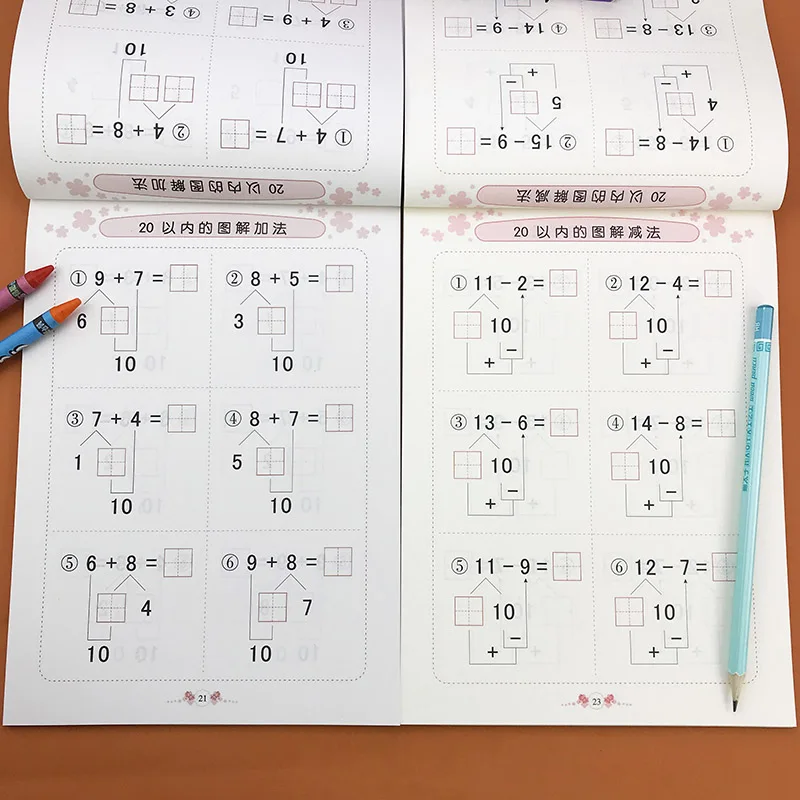 ③ 4 + 9 =
④ 3 + 8 =
10
10
① 4 + 7 =
② 4 + 8 =
20 以内的图解加法
③ 13 − 8 =
④ 14 − 9 =
+
−
4
+
−
5
① 14 − 8 =
② 15 − 9 =
20 以内的图解减法
20 以内的图解加法
① 9 + 7 =
6
10
② 8 + 5 =
3
10
③ 7 + 4 =
1
10
④ 8 + 7 =
5
10
⑤ 6 + 8 =
4
10
⑥ 9 + 8 =
7
10
21
20 以内的图解减法
① 11 − 2 =
10
−
+
② 12 − 4 =
10
−
+
③ 13 − 6 =
10
−
+
④ 14 − 8 =
10
−
+
⑤ 11 − 9 =
10
−
+
⑥ 12 − 7 =
10
−
+
23